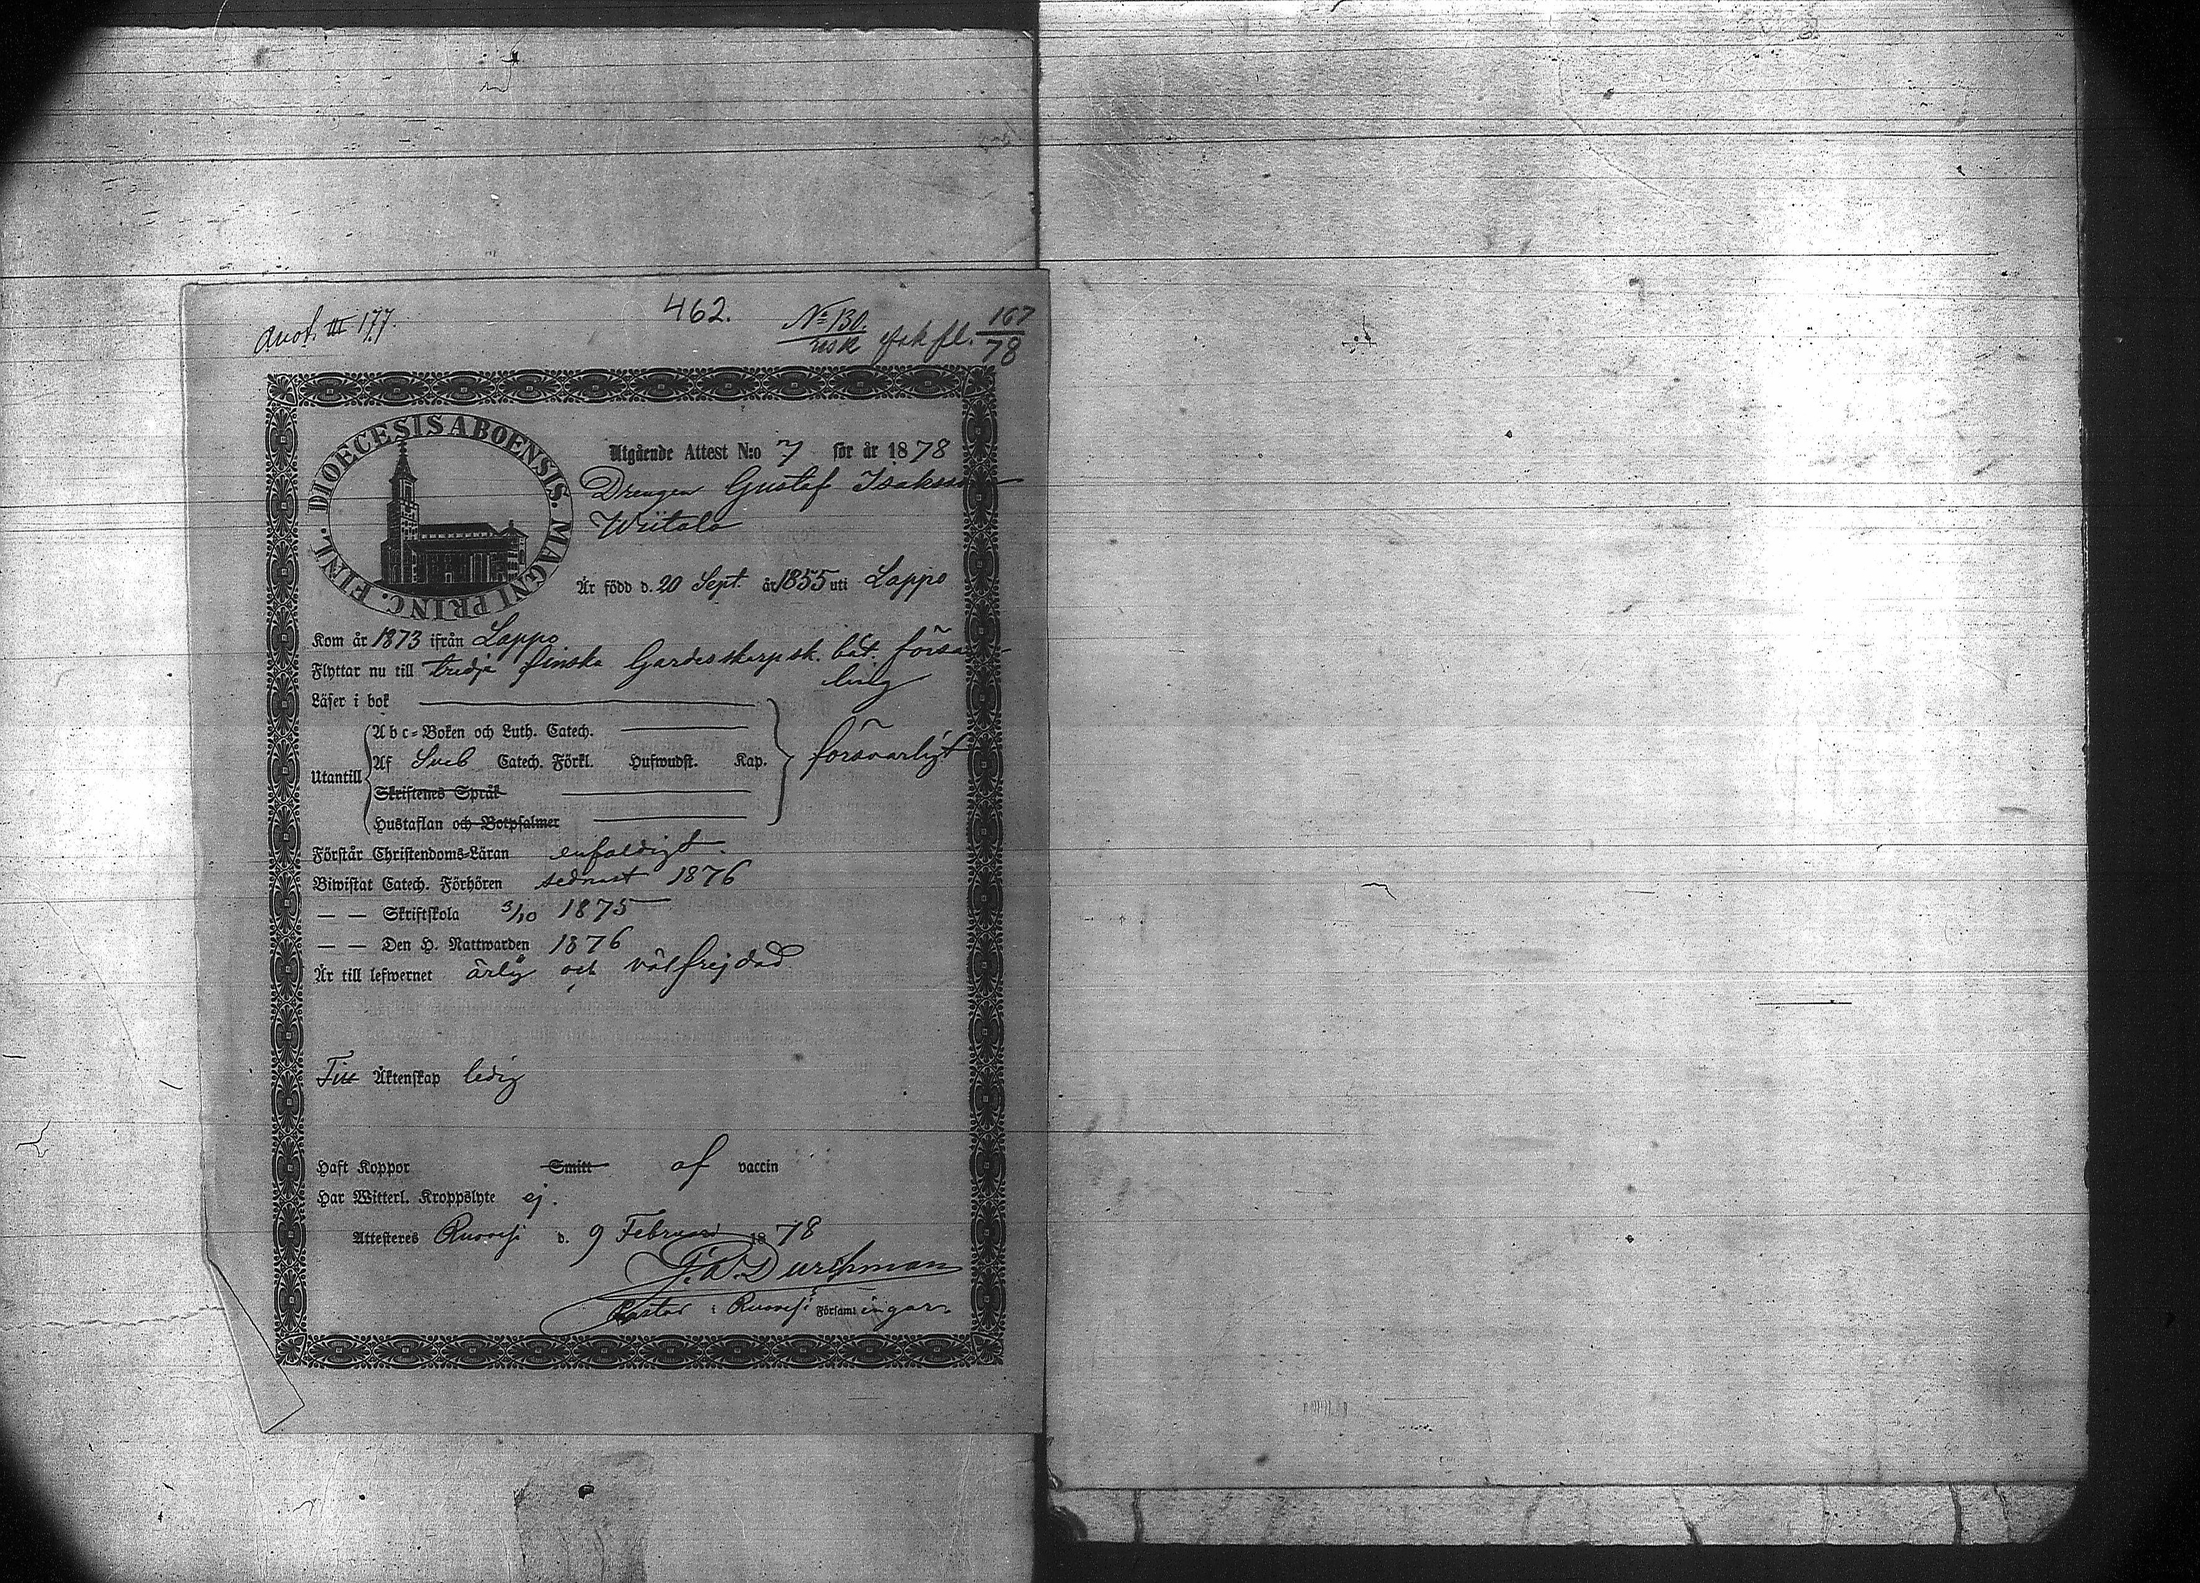 Anot. III 177.
462.
No 130.
167
fl. 78
DIOECESIS ABOENSIS. MAGNI PRINC. FINL.
Utgående Attest N:o 7 för år 1878
Drengen Gustaf Isaksson
Wiitala
Är född d. 20 Sept. år 1855 uti Lappo
Kom år 1873 ifrån Lappo
Flyttar nu till tredje finska Gardesskarpsk. bat. försam-
ling
Läser i bok
Abc-Boken och Luth. Catech.
Utantill Af Sveb Catech. Förkl. Hufwudst. Kap. försvarligt
Skriftenes Språk
Hustaflan och Botpsalmer
Förstår Christendoms-Läran enfaldigt.
Biwistat Catech. Förhören sednast 1876
— — Skriftskola 3/10 1875
— — Den H. Nattwarden 1876
Är till lefwernet ärlig och välfrejdad
Till Äktenskap ledig
Haft Koppor Smitt af vaccin
Har Witterl. Kroppslyte ej.
Attesteres Ruovesi d. 9 Februari 1878
Durchman
Pastor i Ruovesi Församlingar.